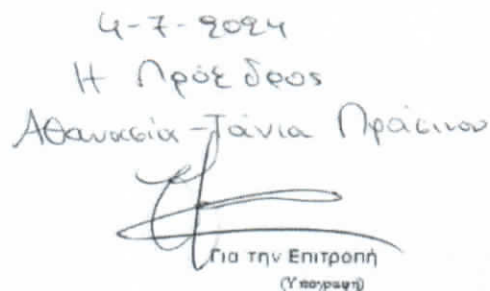 4-7-2024
Η Πρόεδρος
Αθανασία-Τάνια Πράσινου
Για την Επιτροπή
(Υπογραφή)